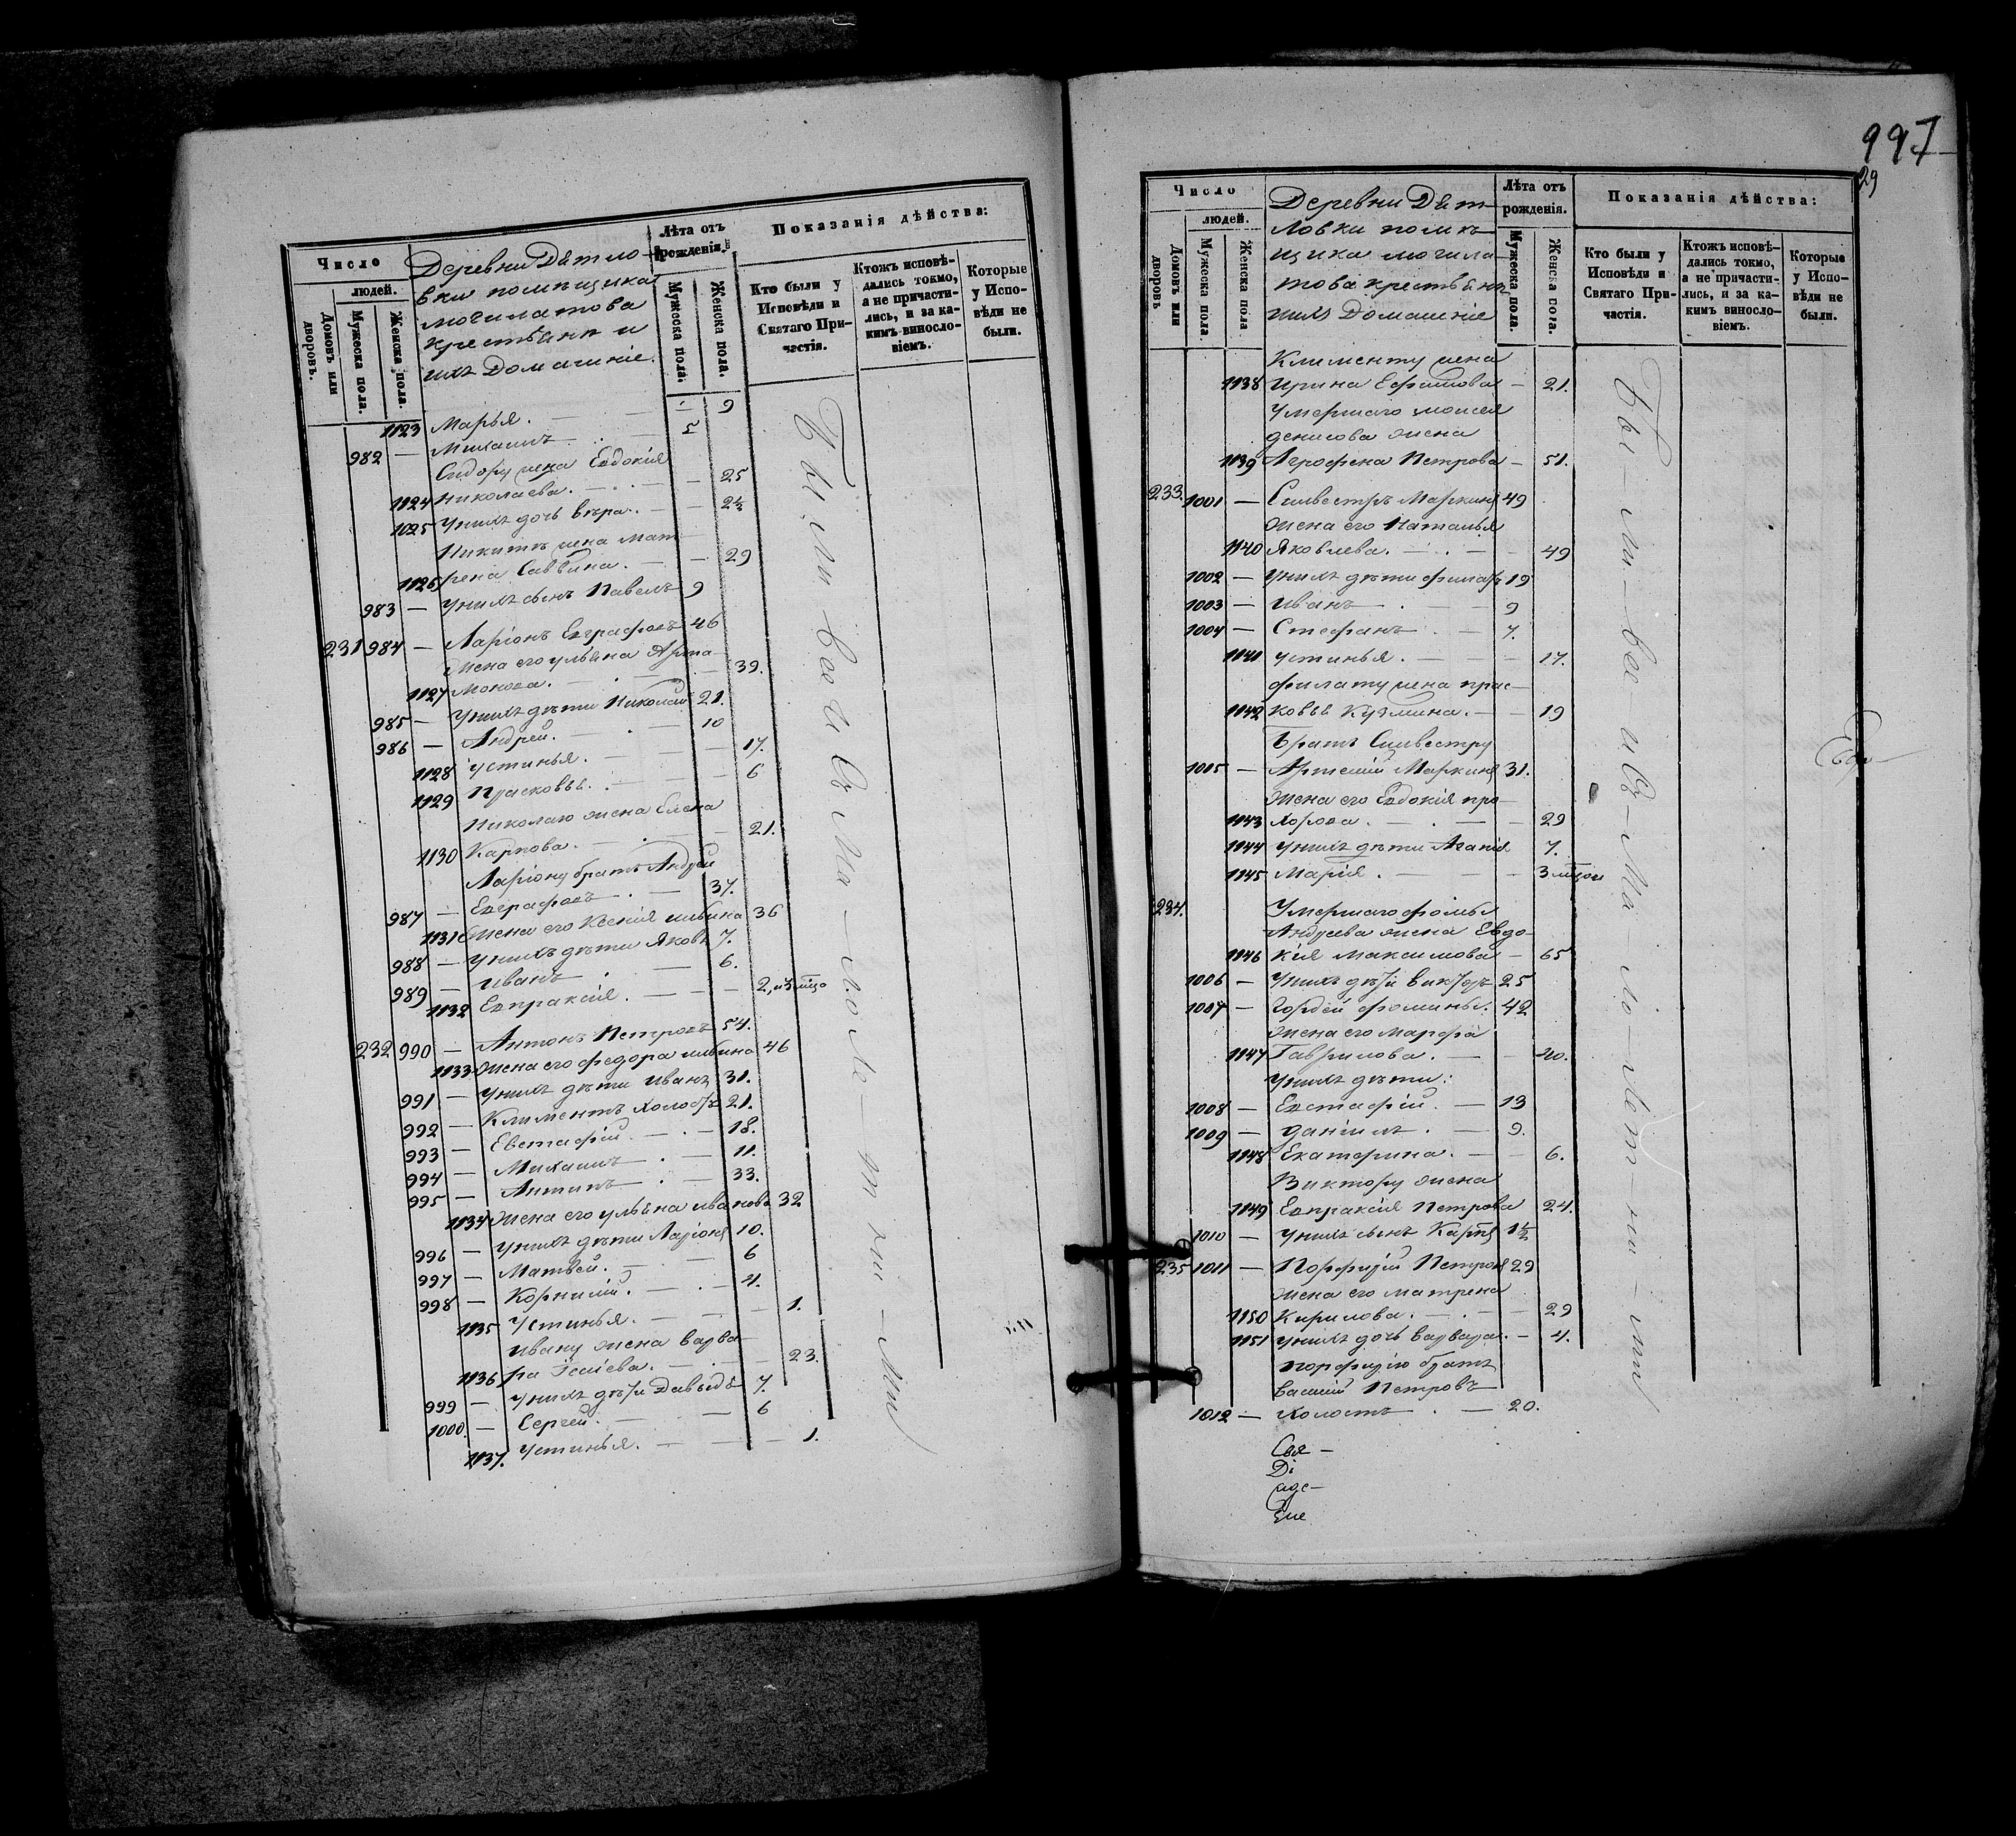 Число
людей.
Домовъ или дворовъ.
Мужеска пола.
Женска пола.
Деревни Дѣтло-
вки помѣщика
могилатова
крестьянѣ и
ихъ Домашніе.
Лѣта отъ рожденія.
Мужеска пола.
Женска пола.
Показанія дѣйства:
Кто были у Исповѣди и Святаго При-
частія.
Ктожъ исповѣ-
дались токмо, а не причасти-
лись, и за ка-
кимъ виносло-
віемъ.
Которые у Испо-
вѣди не были.
1123 Марья. — 9
982 — Михаилъ — 5
Сидору жена Евдокія
1124 Николаева. — 25
1125 У нихъ дочь вѣра. — 2½
Никитѣ жена Мат-
1126 рена Саввина. — 29
983 — У нихъ сынъ Павелъ 9
231 984 — Ларіонъ Евграфовъ 46
Жена его ульяна Арта-
1127 монова. — 39.
985 — У нихъ дѣти Николай 21.
986 — Андрей. — 10
1128 Устинья. — 17.
1129 Прасковья. — 6
Николаю жена Елена
1130 Карпова. — 21.
Ларіону братъ Андрей
987 — Евграфовъ — 37.
1131 Жена его Ксенія ильина 36
988 — У нихъ дѣти Яковъ 7.
989 — Иванъ — 6.
1132 Евпраксія. —
232 990 — Антонъ Петровъ 54.
1133 Жена его федора ильина 46
991 — У нихъ дѣти Иванъ 31.
992 — Климентъ 21.
993 — Евстафій. — 18.
994 — Михаилъ — 11.
995 — Антипъ — 33.
1134 Жена его ульяна иванова 32
996 — У нихъ дѣти Ларіонъ 10.
997 — Матвей. — 6
998 — Корнилій. — 4.
1135 Устинья. — 1.
Ивану жена варва-
1136 ра Исаіева. — 23.
999 — У нихъ дѣти Давыдъ 7.
1000. — Сергей. — 6
1137. Устинья. — 1.
Бы-ли-вси
997
29
Число
людей.
Домовъ или дворовъ
Мужеска пола.
Женска пола
Деревни Дѣт-
ловки помѣ-
щика могила-
това крестьянъ
ихъ Домашніе
Лѣта отъ рожденія.
Мужеска пола.
Женска пола.
Показанія дѣйства:
Кто были у Исповѣди и Святаго При-
частія.
Ктожъ исповѣ-
дались токмо, а не причасти-
лись, и за ка-
кимъ виносло-
віемъ.
Которые у Испо-
вѣди не были.
Клименту жена
1138 ирина Ефимова — 21.
Умершаго моисея
денисова жена
1139 Агрофена Петрова — 51.
233. 1001 — Сильвестръ Маркинъ 49
Жена его Наталья
1140 Яковлева. — 49
1002 — У нихъ дѣти филатъ 19
1003 — Иванъ — 9
1004 — Стефанъ. — 7.
1141 Устинья. — 17.
филату жена прас-
1142 ковья Кузмина. — 19
Братъ Сильвестру
1005 — Артемій Маркинъ 31.
Жена его Евдокія про-
1143 хорова. — 29
1144 У нихъ дѣти Агапія 7.
1145 Марія. — 3
234. Умершаго фомы
Андреева жена Евдо-
1146 кія Максимова — 65
1006 — У нихъ дѣти викторъ 25
1007 — Гордей фоминъ. 42
Жена его Марфа
1147 Гаврилова. — 40.
У нихъ дѣти:
1008 — Евстафій. — 13
1009 — Даніилъ. — 9.
1148 Екатерина. — 6.
Виктору жена
1149 Евпраксія Петрова 24.
1010 — У нихъ сынъ Карпъ 1½
235 1011 — Порфирій Петровъ 29
Жена его матрена
1150 Кирилова. — 29
1151 У нихъ дочь варвара. — 4.
порфирію братъ
василій Петровъ
1012 — Холостъ. — 20.
Бы-ли-вси
Свя-
Ді